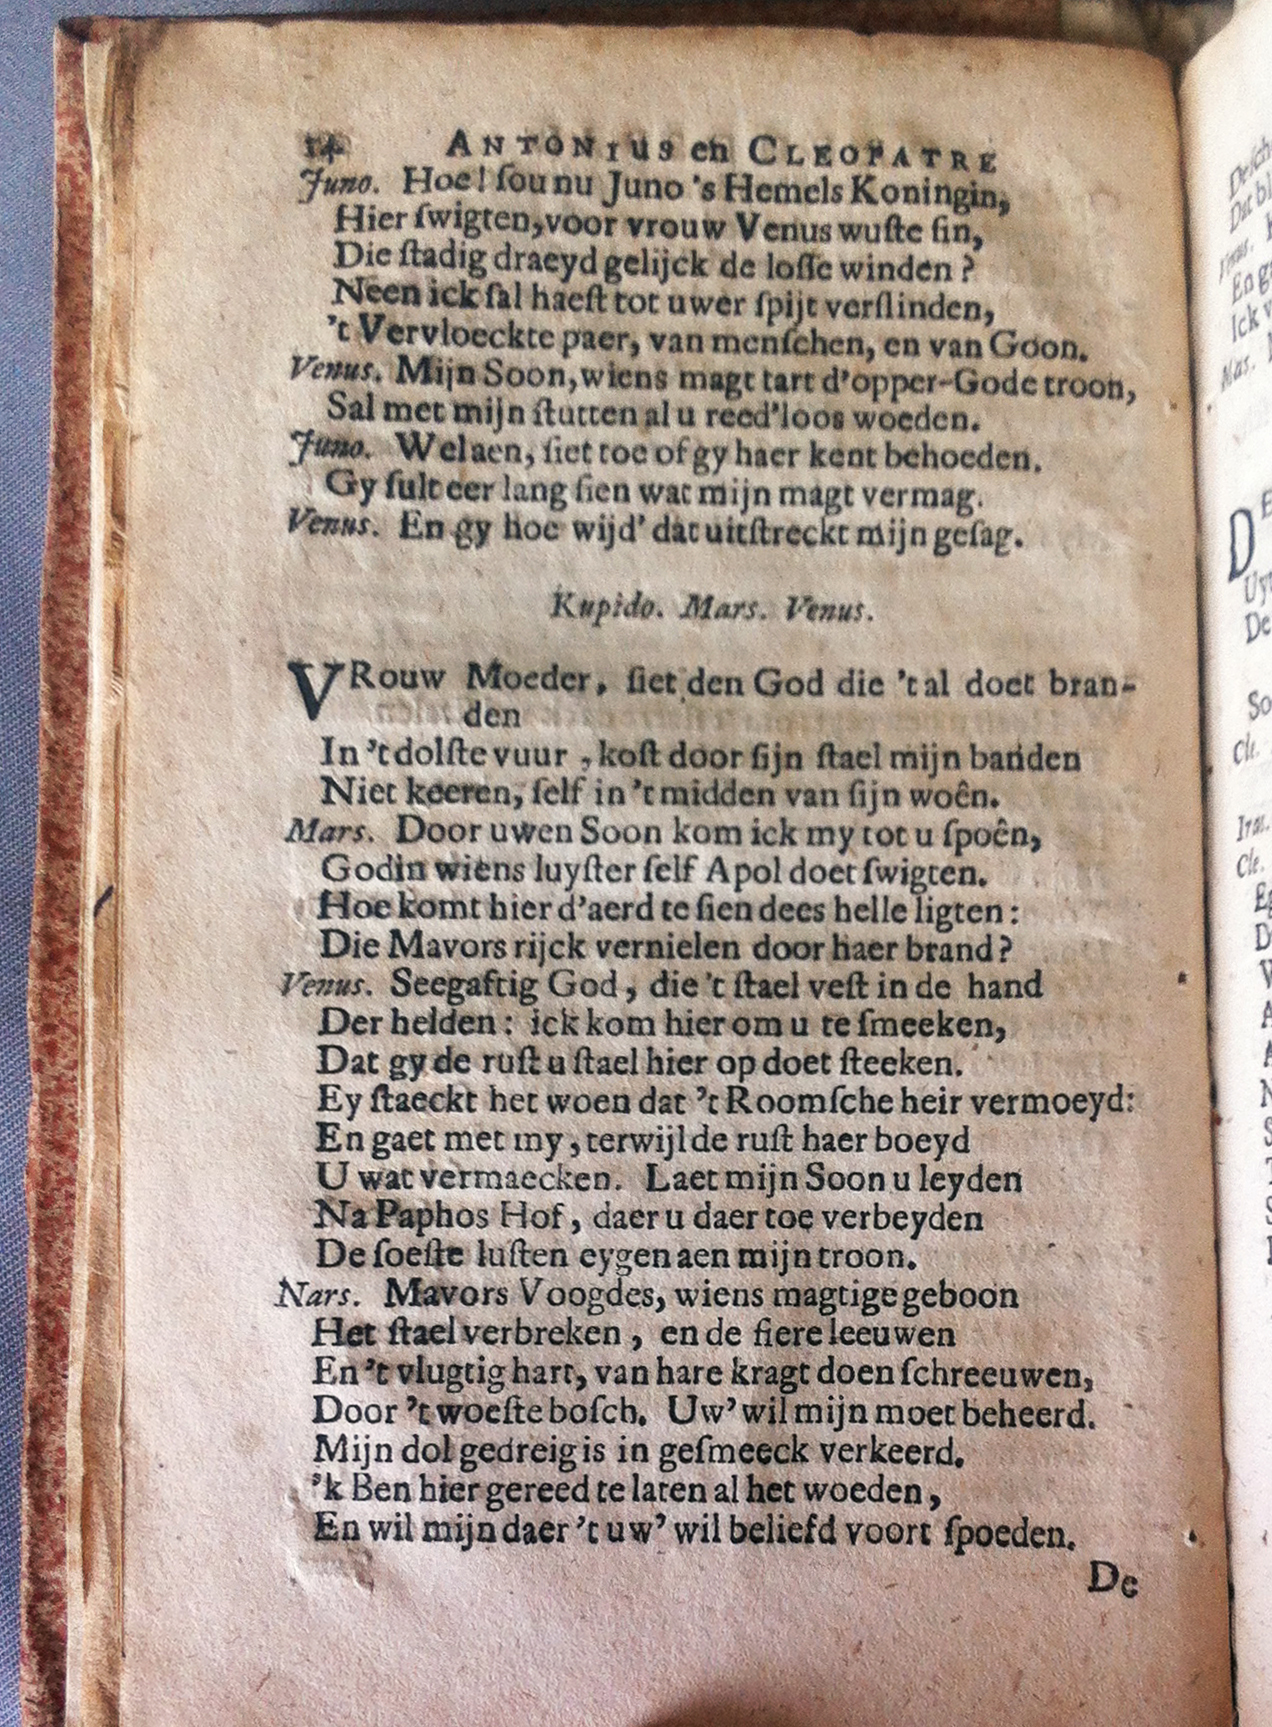 14 ANTONIUS en CLEOPATRE
Juno. Hoe! ſou nu Juno 's Hemels Koningin,
Hier ſwigten, voor vrouw Venus wuſte ſin,
Die ſtadig draeyd gelijck de loſſe winden?
Neen ick ſal haeſt tot uwer ſpijt verſlinden,
't Vervloeckte paer, van menſchen, en van Goon.
Venus. Mijn Soon, wiens magt tart d'opper-Gode troon,
Sal met mijn ſtutten al u reed'loos woeden.
Juno. Welaen, ſiet toe of gy haer kent behoeden.
Gy ſult eer lang ſien wat mijn magt vermag.
Venus. En gy hoe wijd' dat uitſtreckt mijn geſag.
Kupido. Mars. Venus.
VRouw Moeder, ſiet den God die 't al doet bran-
den
In 't dolſte vuur, koſt door ſijn ſtael mijn banden
Niet keeren, ſelf in 't midden van ſijn woên.
Mars. Door uwen Soon kom ick my tot u ſpoên,
Godin wiens luyſter ſelf Apol doet ſwigten.
Hoe komt hier d'aerd te ſien dees helle ligten:
Die Mavors rijck vernielen door haer brand?
Venus. Seegaftig God, die 't ſtael veſt in de hand
Der helden: ick kom hier om u te ſmeeken,
Dat gy de ruſt u ſtael hier op doet ſteeken.
Ey ſtaeckt het woen dat 't Roomſche heir vermoeyd:
En gaet met my, terwijl de ruſt haer boeyd
U wat vermaecken. Laet mijn Soon u leyden
Na Paphos Hof, daer u daer toe verbeyden
De ſoeſte luſten eygen aen mijn troon.
Nars. Mavors Voogdes, wiens magtige geboon
Het ſtael verbreken, en de fiere leeuwen
En 't vlugtig hart, van hare kragt doen ſchreeuwen,
Door 't woeſte boſch. Uw' wil mijn moet beheerd.
Mijn dol gedreig is in geſmeeck verkeerd.
'k Ben hier gereed te laten al het woeden,
En wil mijn daer 't uw' wil beliefd voort ſpoeden.
De